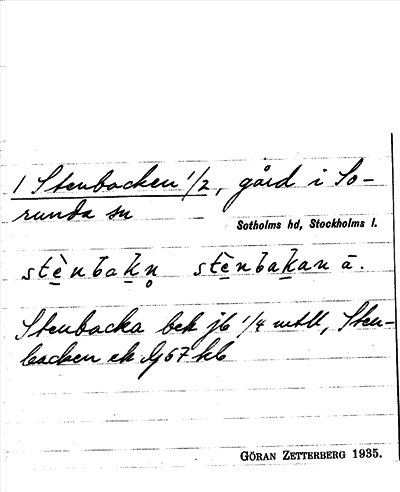 1 Stenbacken 1/2, gård i So-
runda sn
Sotholms hd, Stockholms l.
stènbakn̥ stènbakan ā.
Stenbacka bek jb 1/4 mtll, Sten-
backen ek 67 kb
GÖRAN ZETTERBERG 1935.